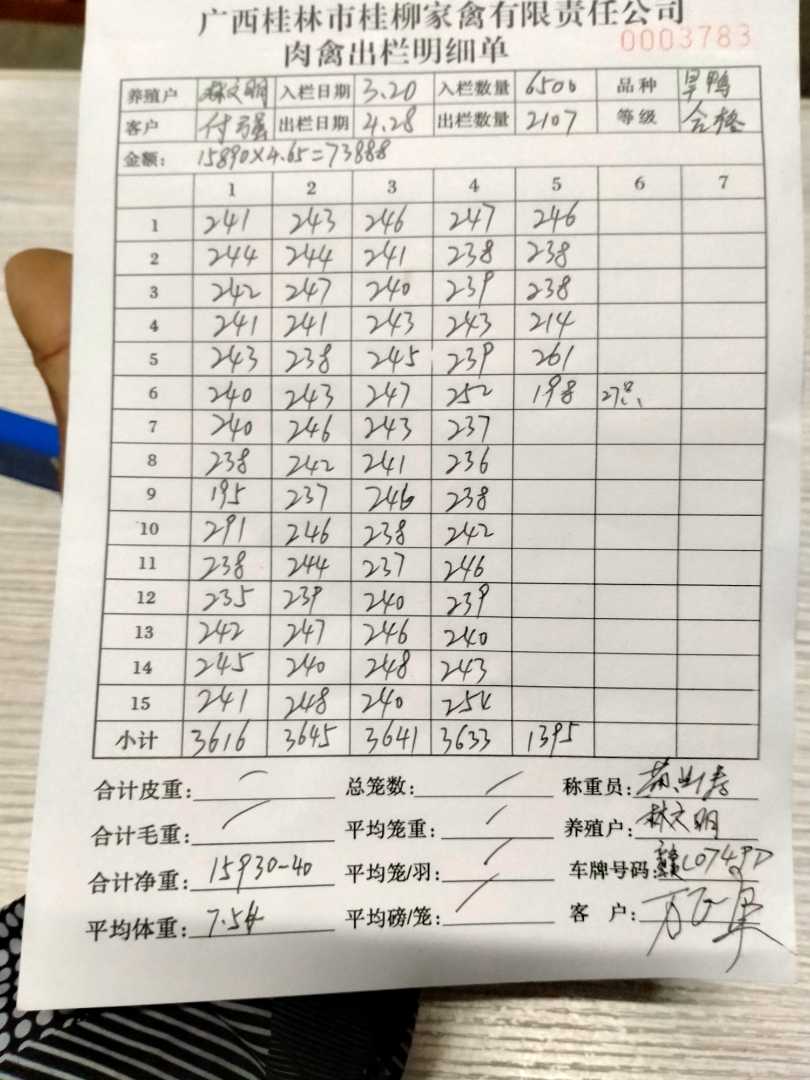 广西桂林市桂柳家禽有限责任公司
肉禽出栏明细单 0003783
养殖户 林文明 入栏日期 3.20 入栏数量 6500 品种 旱鸭
客户 付强 出栏日期 4.28 出栏数量 2107 等级 合格
金额: 15890×4.65=73888
1 2 3 4 5 6 7
1 241 243 246 247 246
2 244 244 241 238 238
3 242 247 240 239 238
4 241 241 243 243 214
5 243 238 245 239 261
6 240 243 247 252 198 27只
7 240 246 243 237
8 238 242 241 236
9 195 237 246 238
10 291 246 238 242
11 238 244 237 246
12 235 239 240 239
13 242 247 246 240
14 245 240 248 243
15 241 248 240 254
小计 3616 3645 3641 3633 1395
合计皮重: 总笼数: 称重员:
合计毛重: 平均笼重: 养殖户: 林文明
合计净重: 15930-40 平均笼/羽: 车牌号码: C0749D
平均体重: 7.54 平均磅/笼: 客户: